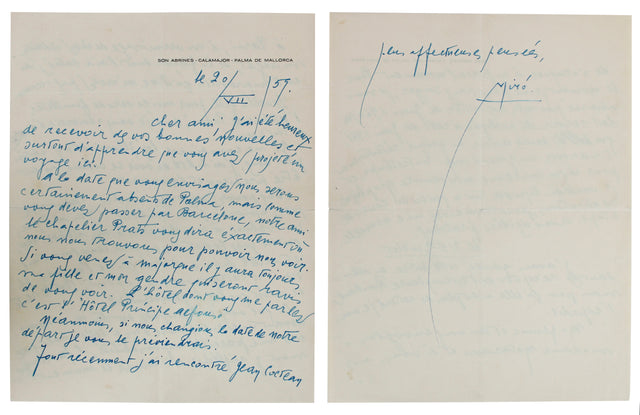 SON ABRINES - CALAMAJOR - PALMA DE MALLORCA
le 20/VII/59.
cher ami: j'ai été heureux
de recevoir de vos bonnes nouvelles et
surtout d'apprendre que vous avez projeté un
voyage ici.
A la date que vous envisagez nous serons
certainement absents de Palma, mais comme
vous devez passer par Barcelone, notre ami
le chapelier Prats vous dira exactement où
nous nous trouvons pour pouvoir nous voir.
Si vous venez à majorque il y aura toujours
ma fille et mon gendre qui seront ravis
de vous voir. L'hôtel dont vous me parlez
c'est l'Hôtel Principe
Néanmoins, si nous changions la date de notre
départ je vous le préviendrais.
Tout récemment j'ai rencontré Jean Cocteau
affectueuses pensées,
Miró.